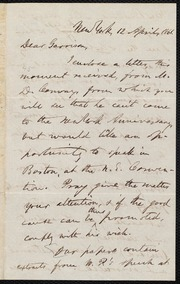 New York, 12 April,
Dear Garrison,
I enclose a letter, this
moment received, from M.
D. Conway, from which you
will see that he can't come
to the New York Anniversary
but would like an op-
portunity to speak in
Boston, at the N. E. Conven-
tion. Pray give the matter
your attention, & if the good
cause can thus be promoted,
comply with his wish.
Our papers contain
extracts from W. P's speech at